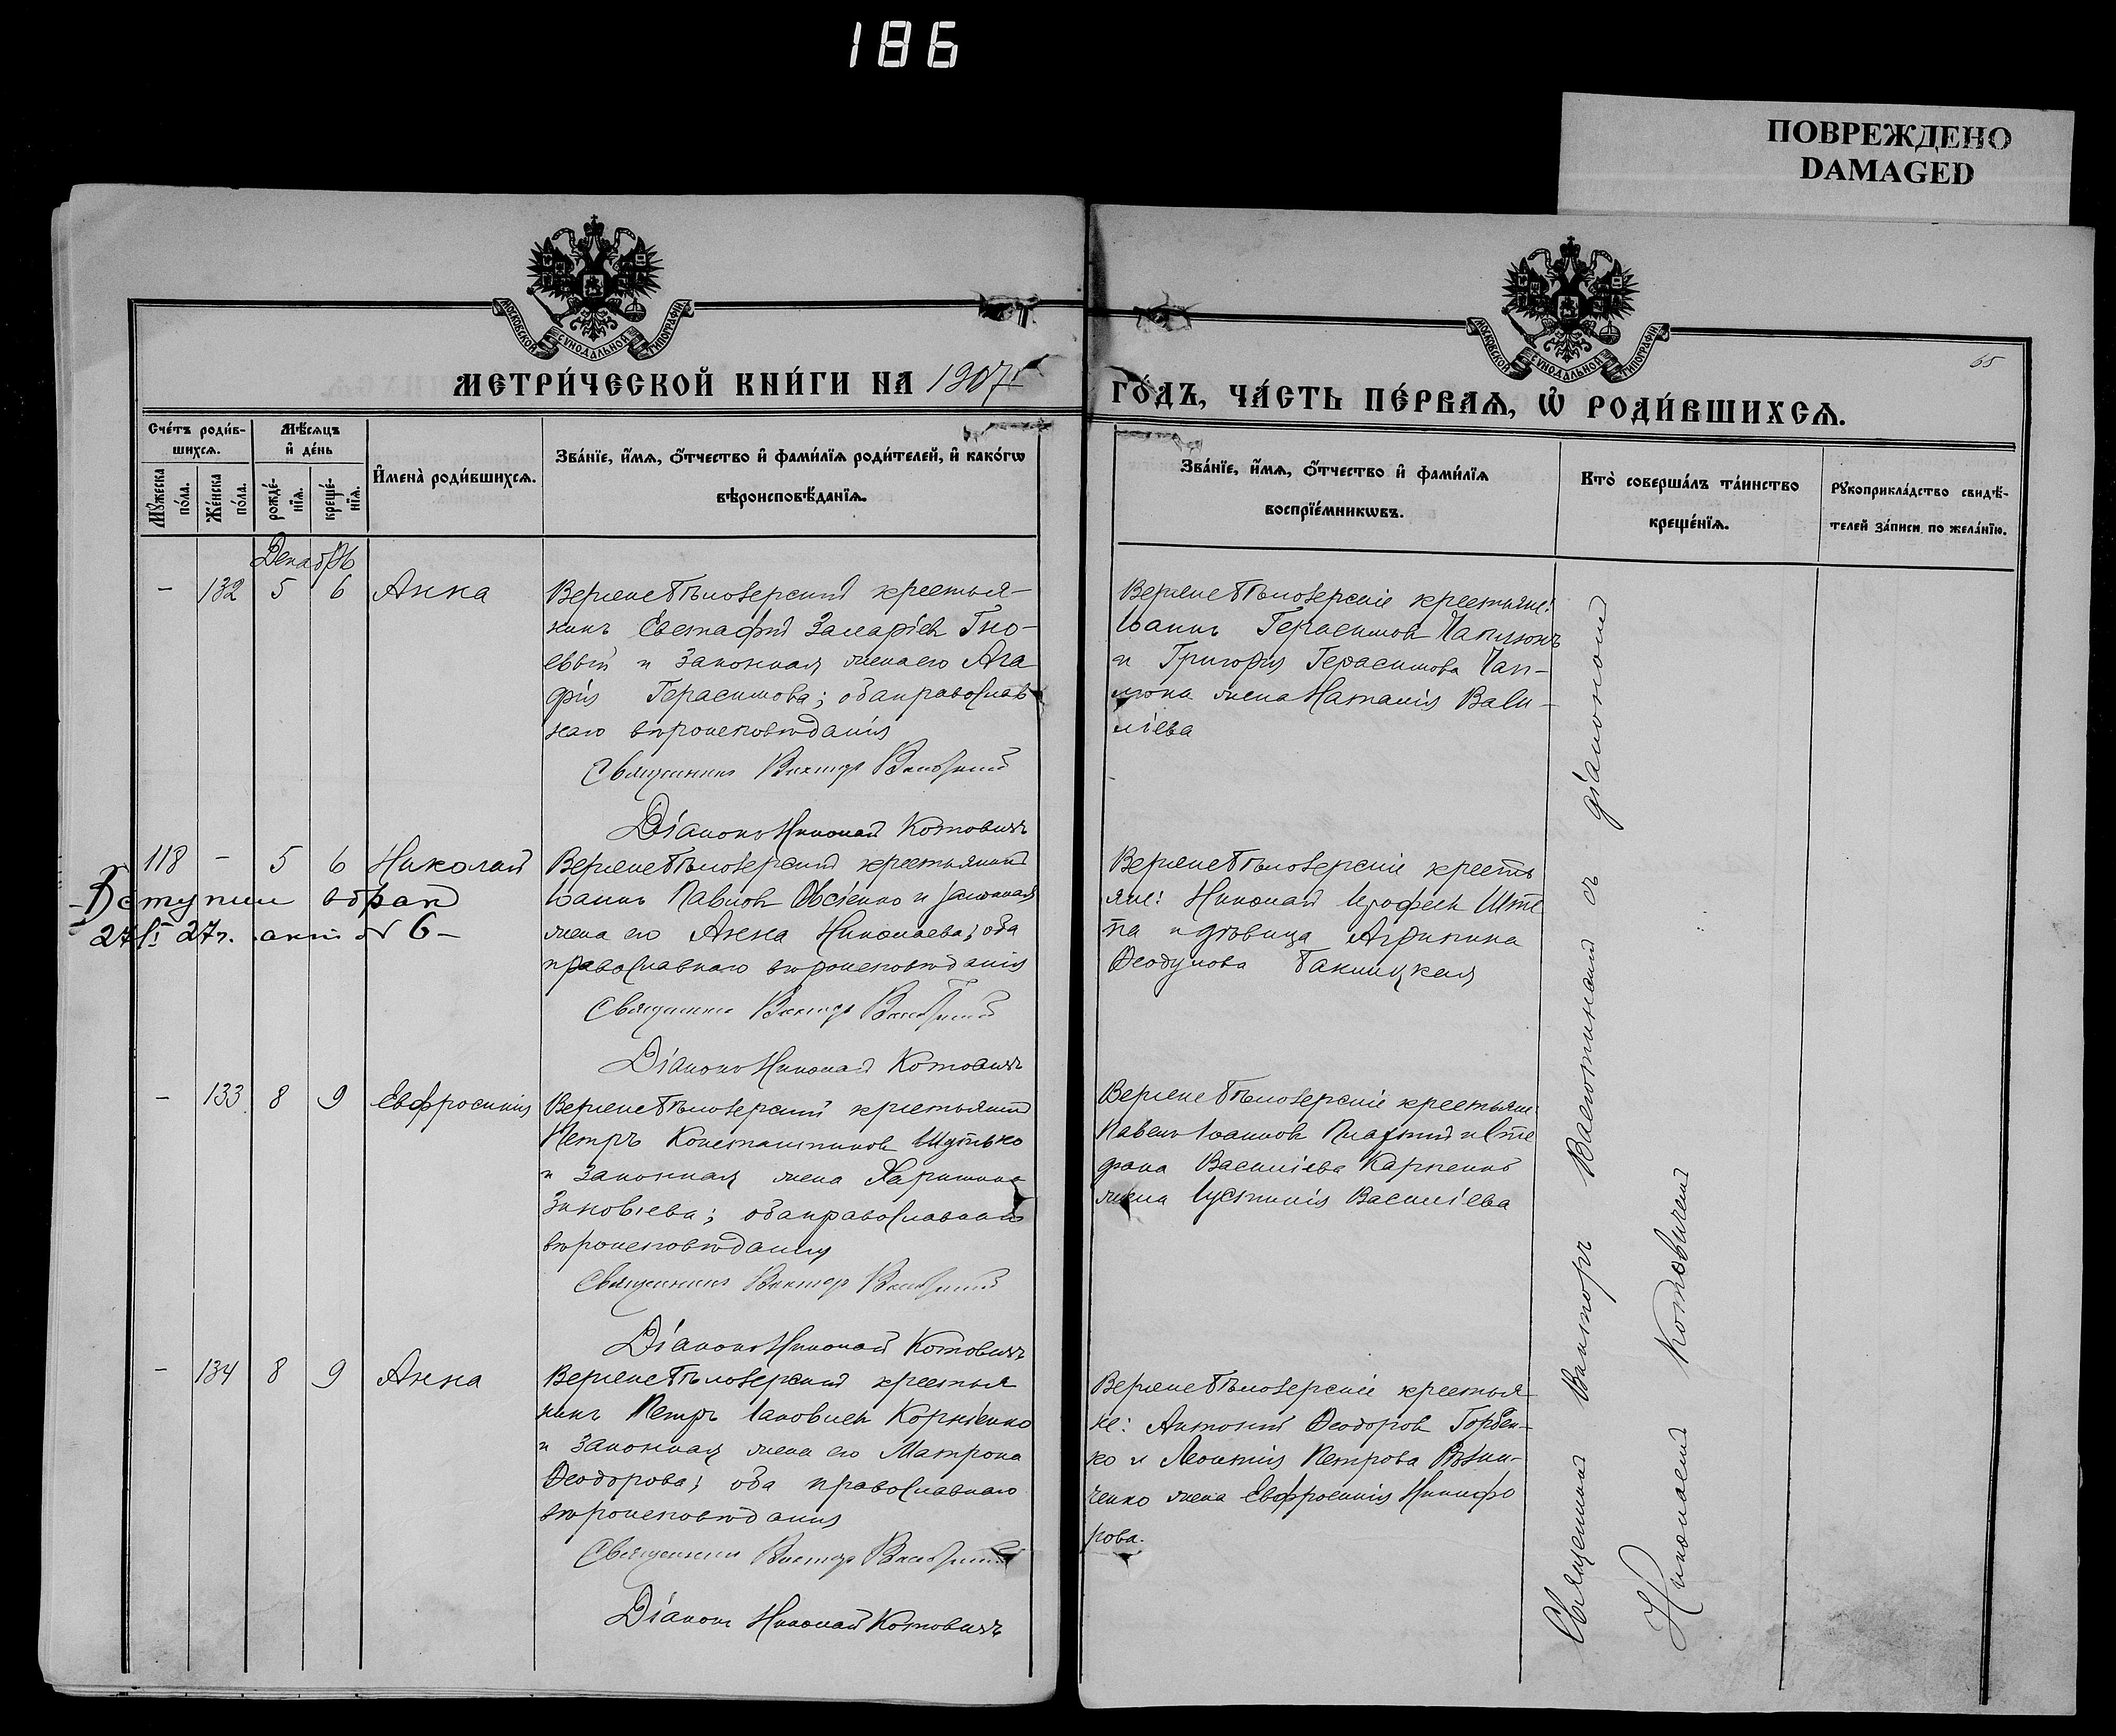 186
ПОВРЕЖДЕНО
DAMAGED
МОСКОВСКОЙ СѴНОДАЛЬНОЙ ТИПОГРАФІИ
МОСКОВСКОЙ СѴНОДАЛЬНОЙ ТИПОГРАФІИ
65
МЕТРИ́ЧЕСКОЙ КНИ́ГИ НА 1907
ГО́ДЪ, ЧА́СТЬ ПЕ́РВАѦ, Ѡ҆ РОДИ́ВШИХСѦ.
Сче́тъ роди́в-
шихсѧ.
Мѣ́сѧцъ
и҆ де́нь
Мꙋ́жеска
по́ла.
Же́нска
по́ла.
рожде́-
нїѧ.
креще́-
нїѧ.
И҆мена̀ роди́вшихсѧ.
Зва́нїе, и҆́мѧ, ѻ҆́тчество и҆ фами́лїѧ роди́телей, и҆ како́гѡ
вѣроисповѣ́данїѧ.
Зва́нїе, и҆́мѧ, ѻ҆́тчество и҆ фами́лїѧ
воспрїе́мникѡвъ.
Кто̀ соверша́лъ та́инство
креще́нїѧ.
Рꙋкоприкла́дство свидѣ́-
телей за́писи по жела́нїю.
Декабрь
- 132 5 6 Анна
Верхнебѣлозерскій крестья-
нинъ Евстафій Захаріев Гно-
евый и законная жена его Ага
фія Герасимова; оба православ
наго вѣроисповѣданія
Священникъ Викторъ
Діаконъ Николай Котовичъ
Верхнебѣлозерскіе крестьяне:
Іоаннъ Герасимов
и Григорія Герасимова
жена Наталія Васи-
ліева
118 - 5 6 Николай
Вступил в брак
27 г. акт № 6 -
Верхнебѣлозерскій крестьянинъ
Іоаннъ Павлов Овсіенко и законная
жена его Анна Николаева; оба
православнаго вѣроисповѣданія
Священникъ Викторъ
Діаконъ Николай Котовичъ
Верхнебѣлозерскіе кресть
яне: Николай Ерофеев
и дѣвица Агрипина
Феодулова
- 133 8 9 Евфросинія
Верхнебѣлозерскій крестьянинъ
Петръ Константинов
и законная жена Харитина
Зиновіева; оба православнаго
вѣроисповѣданія
Священникъ Викторъ
Діаконъ Николай Котовичъ
Верхнебѣлозерскіе крестьяне
Павелъ Іоаннов и Сте
фана Василіева Карпенко
жена Іустинія Василіева
- 134 8 9 Анна
Верхнебѣлозерскій крестья
нинъ Петръ Іаковлев Корніенко
и законная жена его Матрона
Феодорова; оба православнаго
вѣроисповѣданія
Священникъ Викторъ
Діаконъ Николай Котовичъ
Верхнебѣлозерскіе крестья
не: Антоній Феодоров Горбен-
ко и Леонтія Петрова
жена Евфросинія Никифо
рова.
Священникъ Викторъ съ діакономъ
Николаемъ Котовичемъ